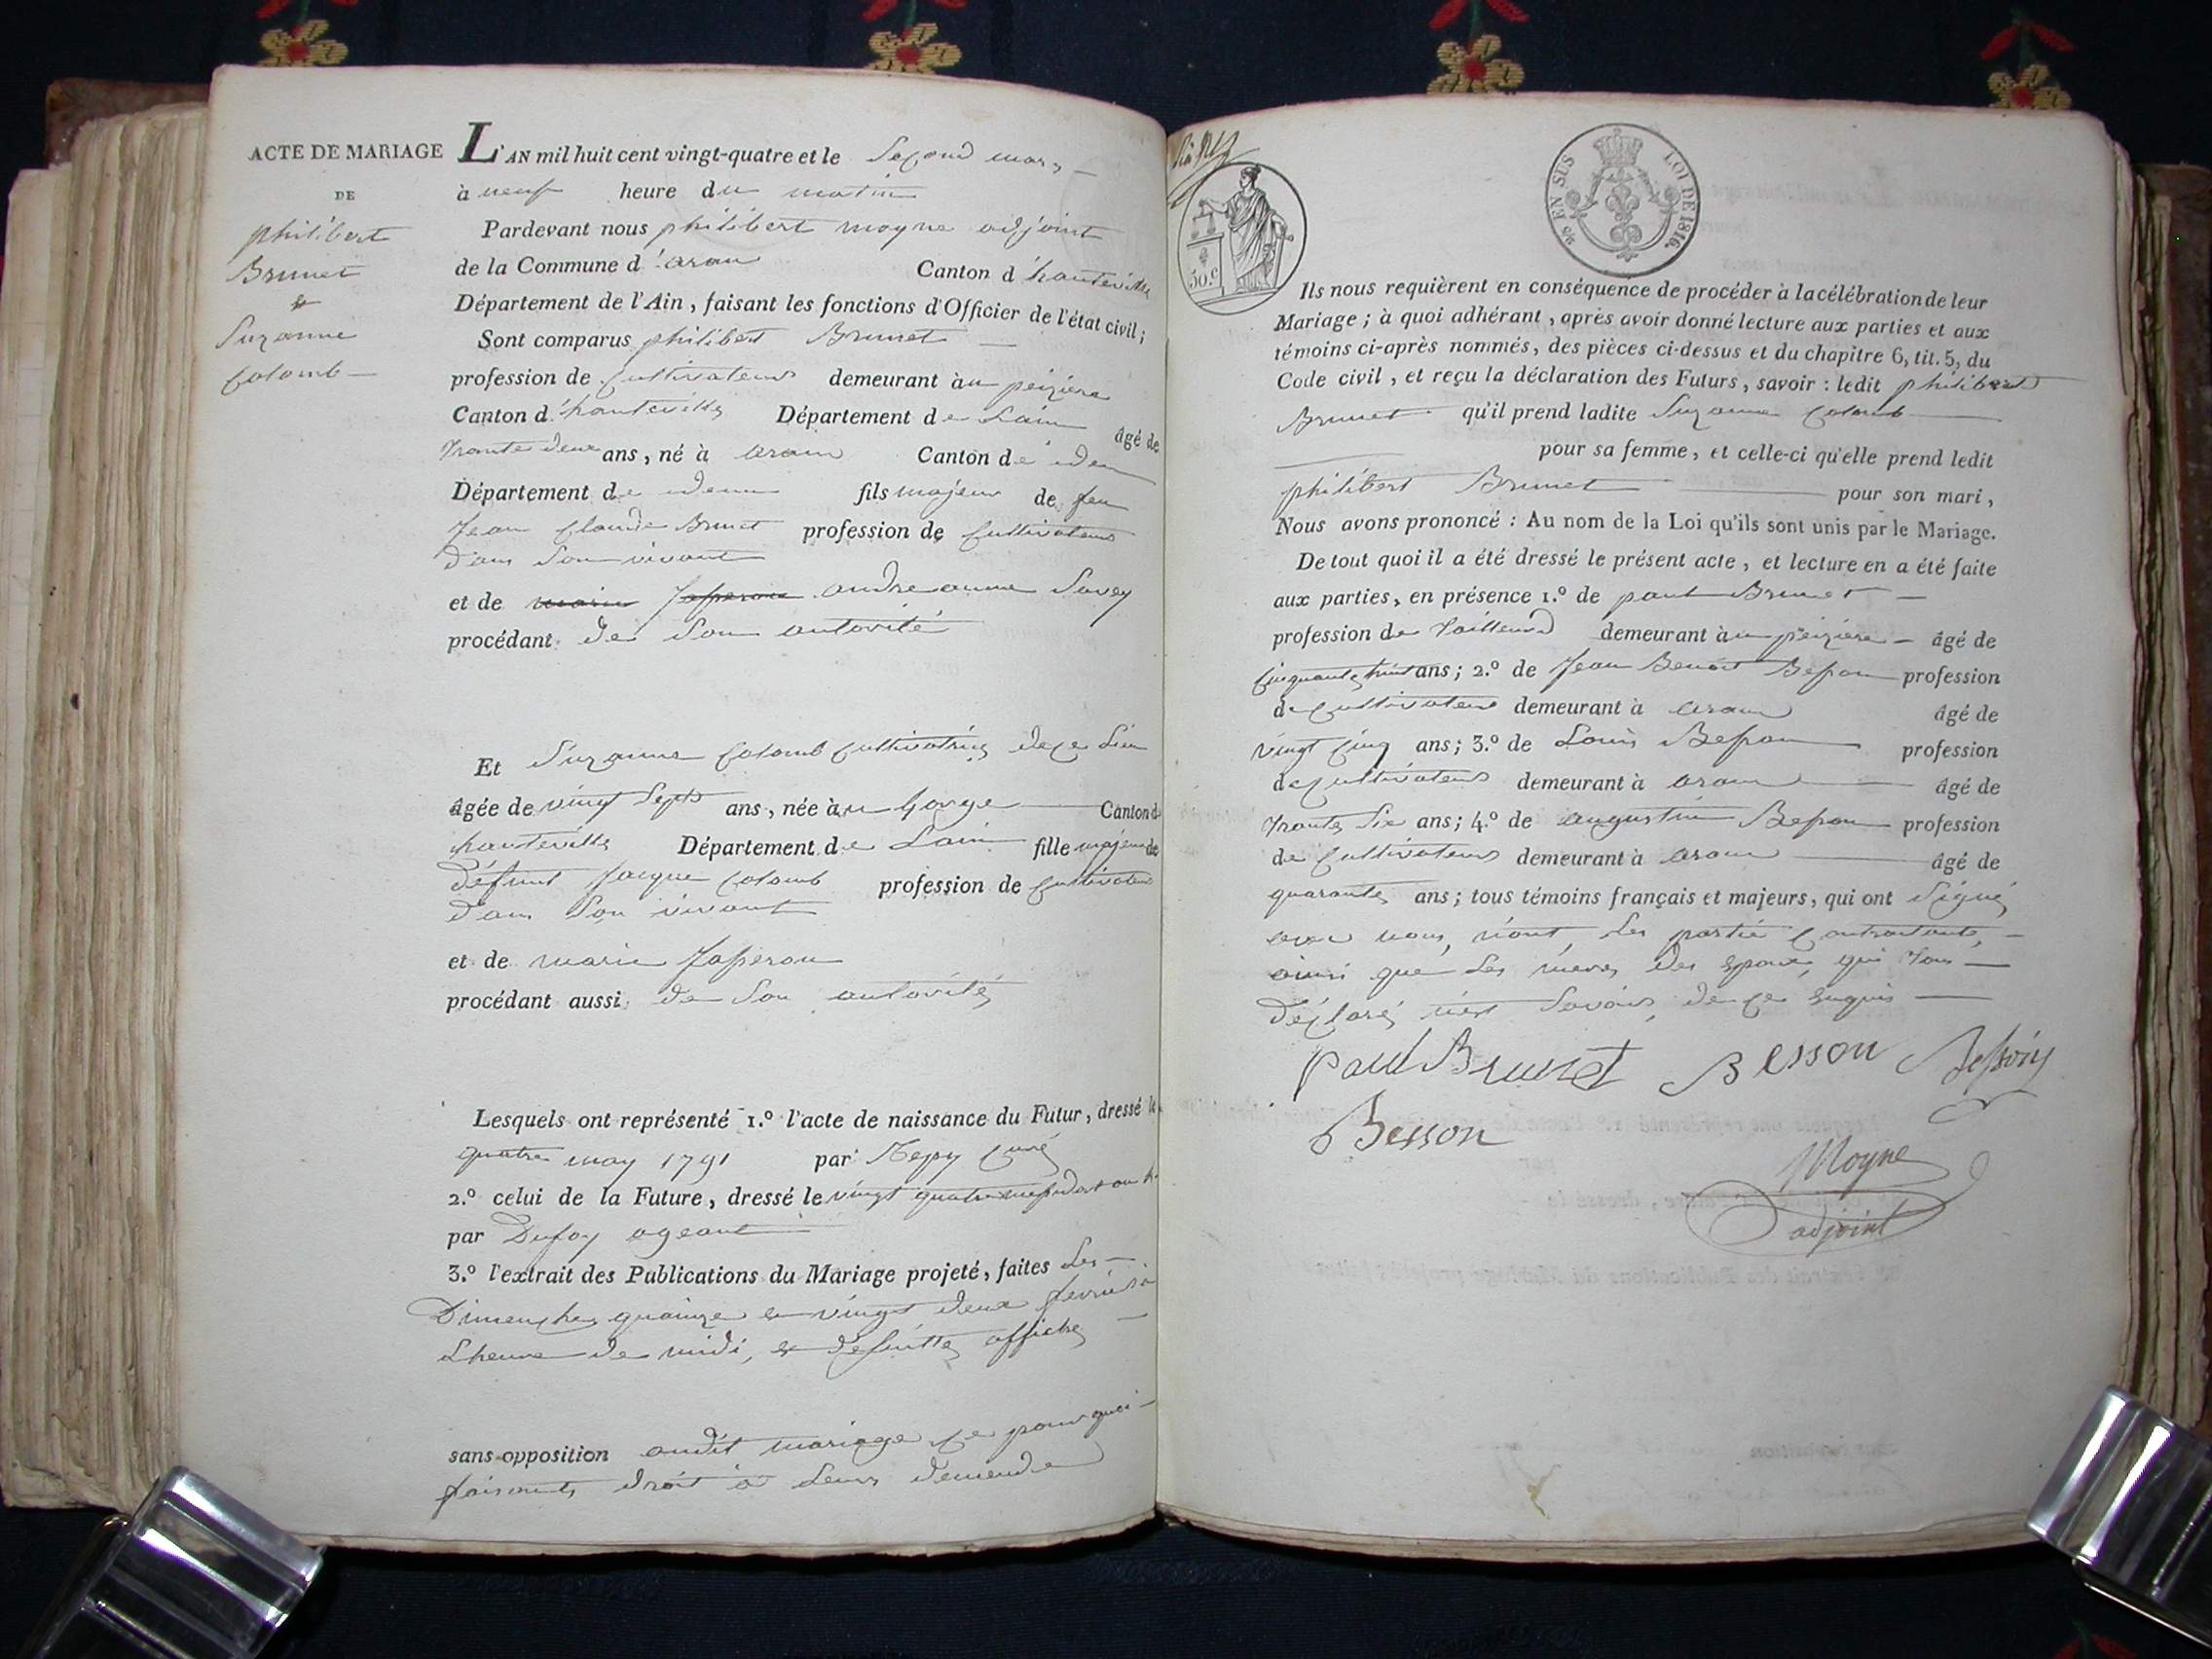 ACTE DE MARIAGE
DE
philibert
Brunet
&
Suzanne
Colomb
L'AN mil huit cent vingt-quatre et le Second mars
à neuf heure du matin
Pardevant nous philibert moyne adjoint
de la Commune d'aran Canton d'hauteville
Département de l'Ain, faisant les fonctions d'Officier de l'état civil;
Sont comparus philibert Brunet
profession de Cultivateur demeurant àu peiziere
Canton d'hauteville Département de Lain âgé de
trante deux ans, né à aran Canton de idem
Département de idem fils majeur de feu
Jean Claude Brunet profession de Cultivateur
dans Son vivant
et de marie Josserou andreanne Savey
procédant de Son autorité
Et Suzanne Colomb Cultivatrice de Ce Lieu
âgée de vingt Sept ans, née àu Gorge Canton d
hauteville Département de Lain fille majeure de
défunt Jacque Colomb profession de Cultivateur
dans Son vivant
et de marie Josserou
procédant aussi de Son autorité
Lesquels ont représenté 1.º l'acte de naissance du Futur, dressé le
quatre may 1791 par Curé
2.º celui de la Future, dressé le vingt quatre messidor an 4
par Dufoy ageant
3.º l'extrait des Publications du Mariage projeté, faites Les
Dimenche quainze & vingt deux fevrié à
Lheure de midi, & desuitte affiché
sans opposition audit mariage Ce pourquoi
faisant droit à Leur demende
50.c
EN SUS
LOI DE 1816.
Ils nous requièrent en conséquence de procéder à la célébration de leur
Mariage; à quoi adhérant, après avoir donné lecture aux parties et aux
témoins ci-après nommés, des pièces ci-dessus et du chapitre 6, tit. 5, du
Code civil, et reçu la déclaration des Futurs, savoir: ledit philibert
Brunet qu'il prend ladite Suzanne Colomb
pour sa femme, et celle-ci qu'elle prend ledit
philibert Brunet pour son mari,
Nous avons prononcé: Au nom de la Loi qu'ils sont unis par le Mariage.
De tout quoi il a été dressé le présent acte, et lecture en a été faite
aux parties, en présence 1.º de paul Brunet
profession de Tailleur demeurant àu peiziere âgé de
Cinquante huit ans; 2.º de Jean Benoit Besson profession
de Cultivateur demeurant à aran âgé de
vingt Cinq ans; 3.º de Louis Besson profession
de Cultivateur demeurant à aran âgé de
trante Six ans; 4.º de augustin Besson profession
de Cultivateur demeurant à aran âgé de
quarante ans; tous témoins français et majeurs, qui ont Signé
avec nous, non Les partie Contractante,
ainsi que Les meres des epoux, qui tous
déclaré nes Savoir, de Ce enquis
Paul Brunet Besson Besson
Besson
Moyne
adjoint